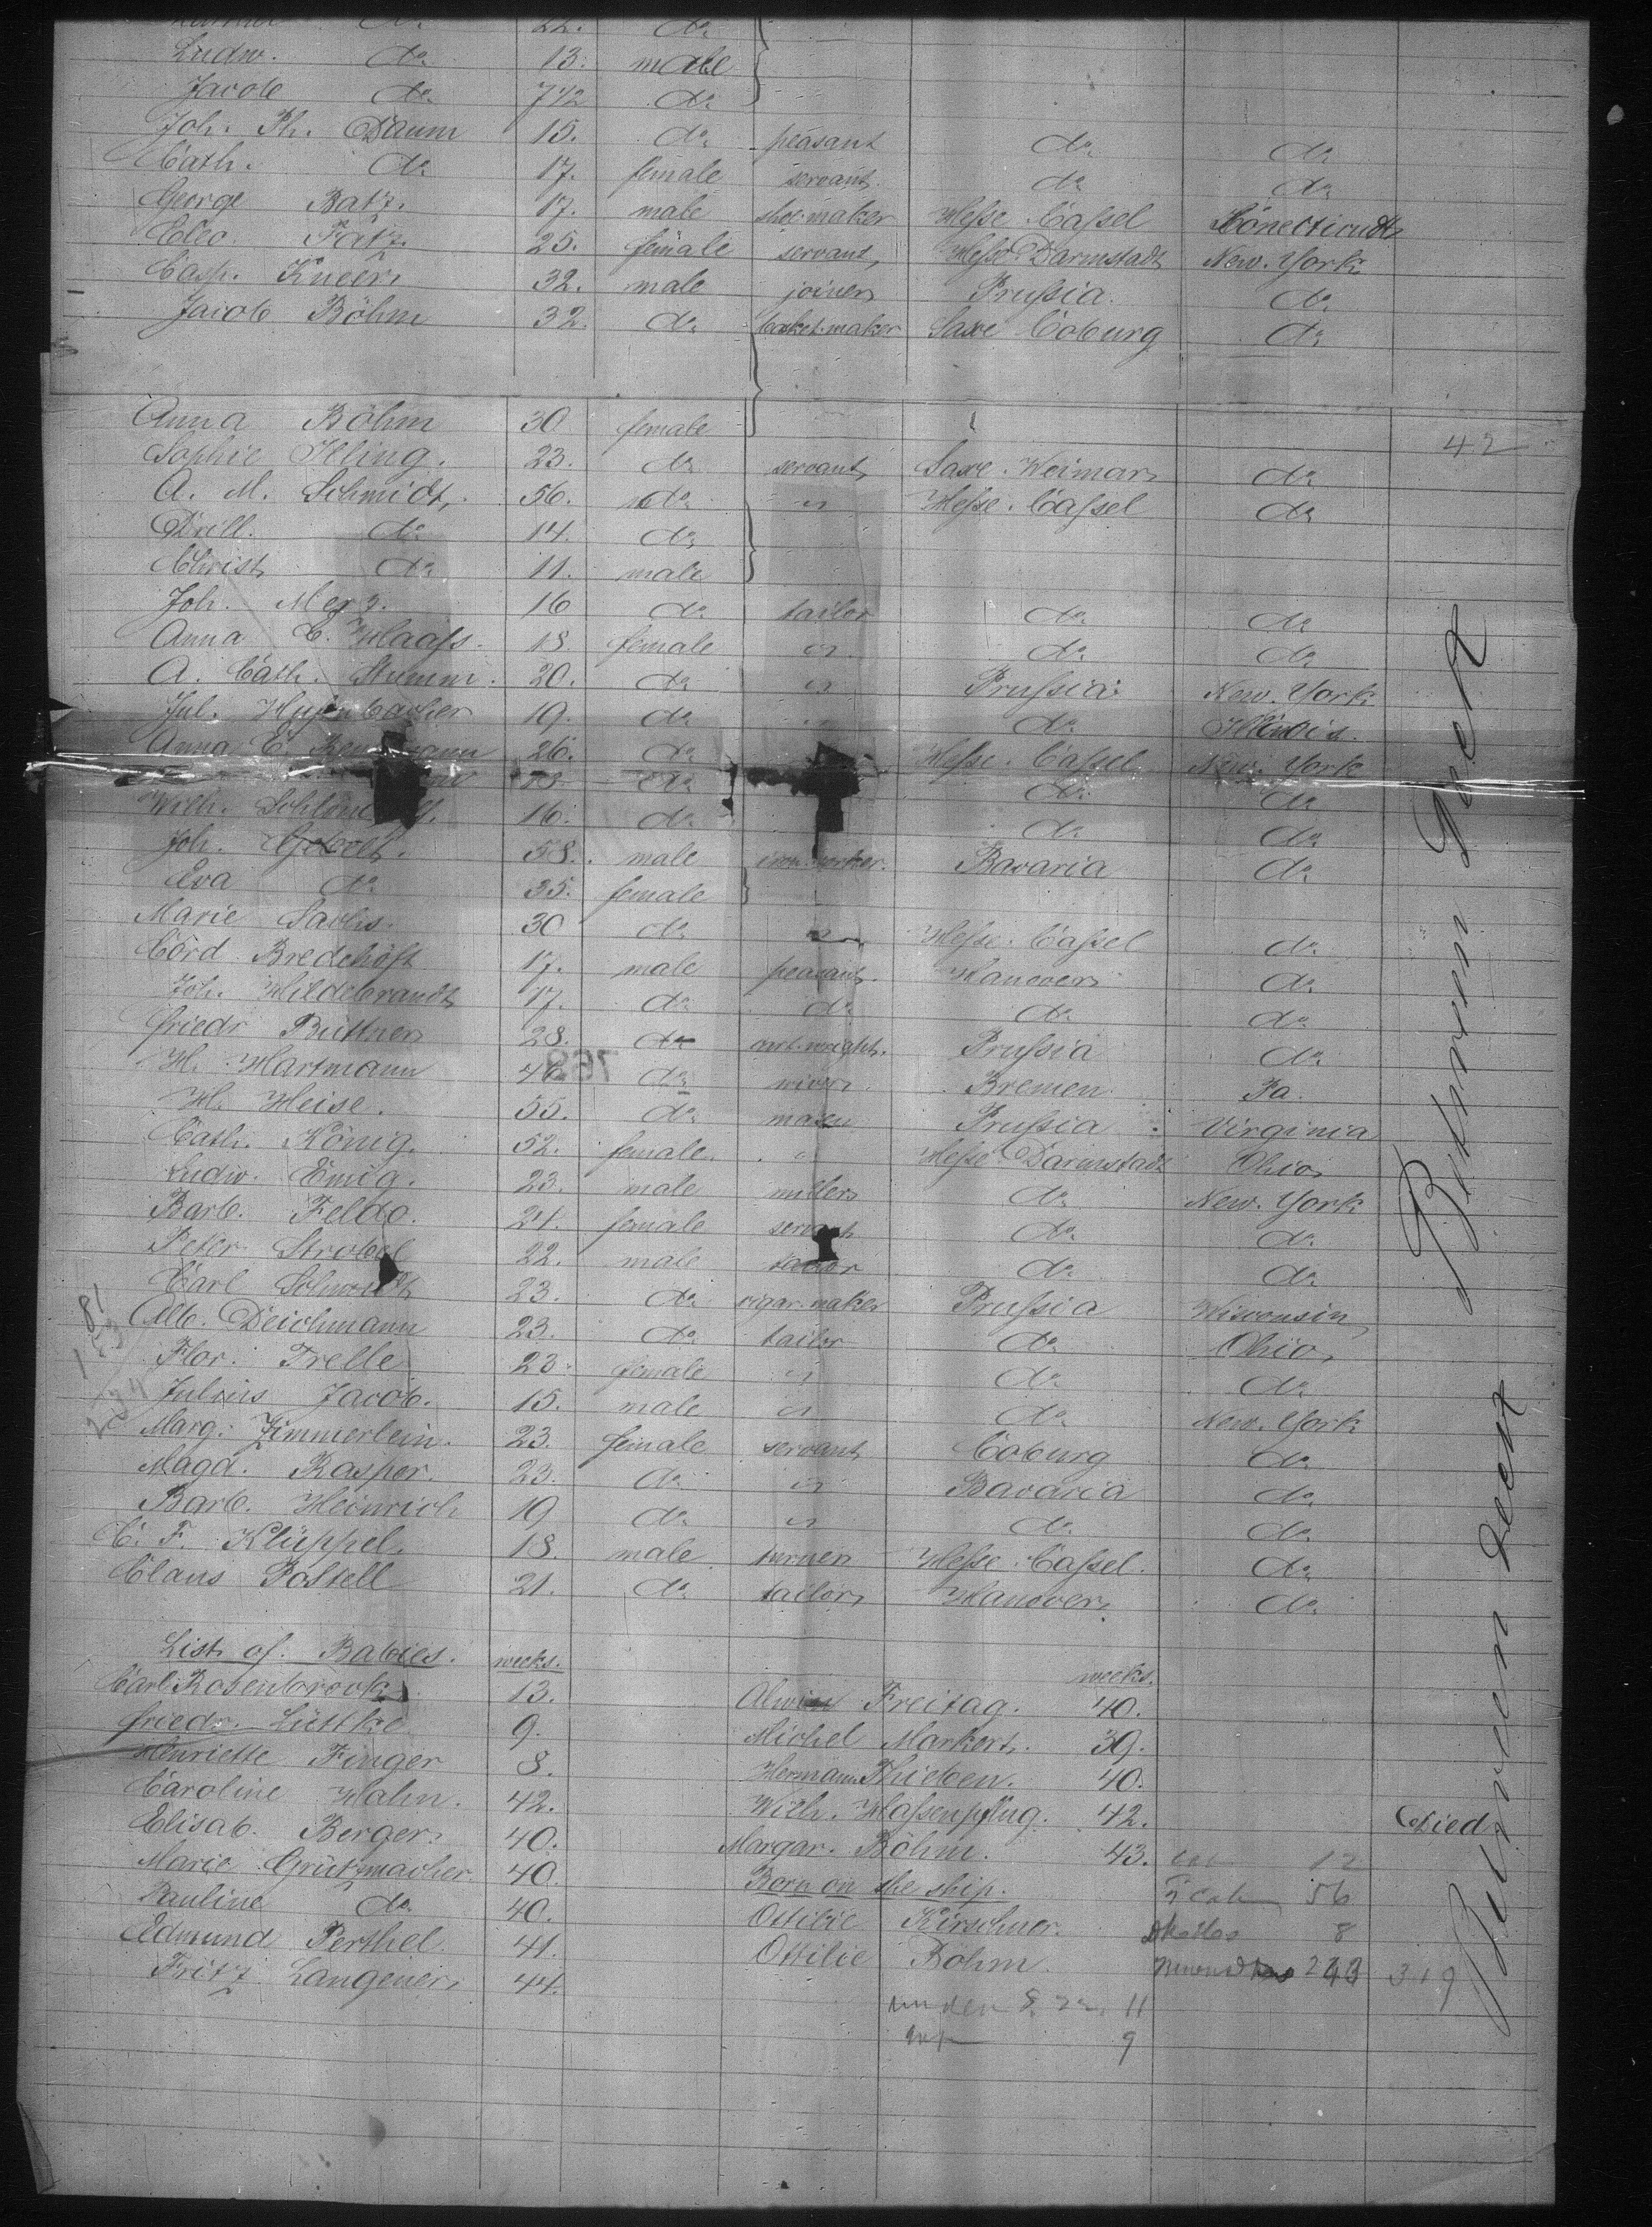 22. do
Ludw. do 13. male
Jacob do 7 1/2 do
Joh. Ph. Daum 15. do peasant do do
Cath. do 17. female servant do do
George Batz. 17. male shoe-maker Hesse Cassel Conecticudt
Eleo. Fatz. 25. female servant Hesse Darmstadt New-York
Casp. Kneer 32. male joiner Prussia do
Jacob Böhm 32. do basket-maker Saxe Coburg do
Anna Böhm 30 female
42
Sophie Illing. 23. do servant Saxe-Weimar do
A. M. Schmidt, 56. do " Hesse-Cassel do
Drill. do 14. do
Christ do 11. male
Joh. Merz. 16 do tailor do do
Anna C. Haass. 18 female " do do
A. Cath. Stumm. 20. do " Prussia New-York
Jul. 19. do " do Illinois.
Anna C. 26. do Hesse-Cassel New-York
do do do
Wilh. 16. do do do
Joh. 58. male Bavaria do
Eva do 35. female
Marie Sachs. 30 do " Hesse-Cassel do
Cord Bredehöft 17. male peasant. Hanover do
Joh. Hildebrandt 17. do do do do
Friedr Büttner 28. do cart-wright. Prussia do
H. Hartmann do Bremen Pa.
H. Heise. 55. do mason Prussia Virginia
Cath. König. 52. female " Hesse Darmstadt Ohio
Ludw. Emig. 23. male miller do New-York
Barb. Feldo. 21. female servant do do
Peter Strobel 22. male tailor do do
Carl Schmidt 23. do cigar-maker Prussia Wisconsin
Alb. Deichmann 23. do tailor do Ohio
Flor. Trelle 23. female " do do
Julius Jacob. 15. male " do New-York
Marg. Zimmerlein. 23. female servant Coburg do
Magd. Kasper. 23. do " Bavaria do
Barb. Heinrich 19 do " do do
C. F. Klüppel. 18. male turner Hesse-Cassel. do
Claus Postell 21. do tailor Hanover do
List of Babies. weeks. weeks.
Carl Rosenbrock 13. Alwin Freitag. 40.
Friedr. Lüttke 9. Michel Markert. 39.
Henriette Finger 8. Hermann Thieben. 40.
Caroline Hahn. 42. Wilh. Hassenpflug. 42. Died
Elisab. Berger. 40. Margar. Böhm. 43. 12
Marie Grützmacher. 40. Born on the ship. 56
Pauline do 40. Ottilie Kirschner. 8
Edmund Perthel. 41. Ottilie Böhm. 243 319
Fritz Langener 44.
under 11
9